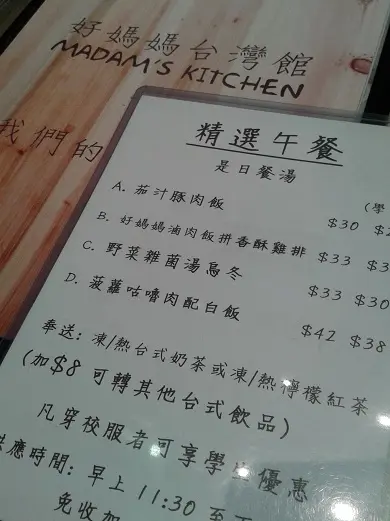 好媽媽台灣館
MADAM'S KITCHEN
我們的
精選午餐
是日餐湯
(學
A. 茄汁豚肉飯 $30
B. 好媽媽滷肉飯拼香酥雞排 $33 $3
C. 野菜雜菌湯烏冬 $33 $30
D. 菠蘿咕嚕肉配白飯 $42 $38
奉送: 凍/熱台式奶茶或凍/熱檸檬紅茶
(加$8 可轉其他台式飲品)
凡穿校服者可享學生優惠
供應時間: 早上 11:30 至
免收加